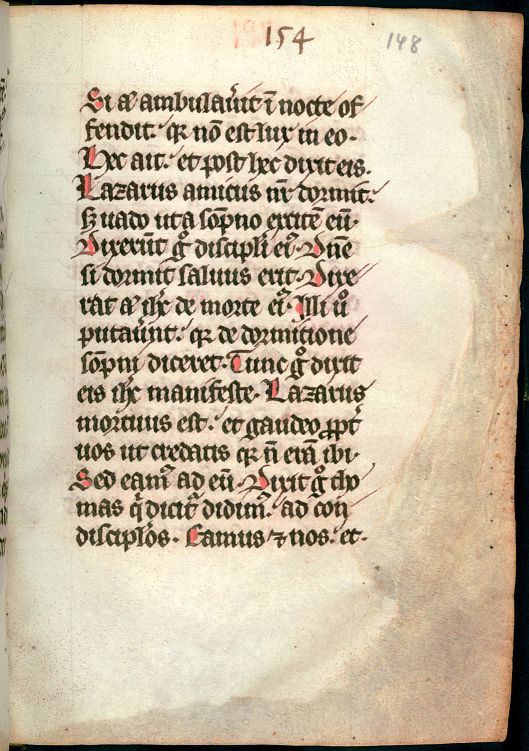 154
148
Si aẽ ambulaũit ĩ nocte of
fendit. qꝛ nõ est lux in eo.
Hec ait. et post hec dixit eis.
Lazarus amicus nr̃ dormit.
sꝫ uado ut a sõpno excitẽ eũ.
Dixerũt gͦ discipli eiꝰ. Dñe
si dormit saluus erit. Dixe
rat aẽ ihc̃ de morte eiꝰ. Illi uͦ
putaũnt. qꝛ de dormitione
sõpni diceret. Tunc gͦ dixit
eis ihc̃ manifeste. Lazarus
mortuus est. et gaudeo ꝓpt̃
uos ut credatis qꝛ ñ erã ibi.
Sed eamꝰ ad eũ. Dixit gͦ tho
mas q̇ dicit᷑ didimꝰ. ad con
discipl̃os. Eamus ⁊ nos. et.